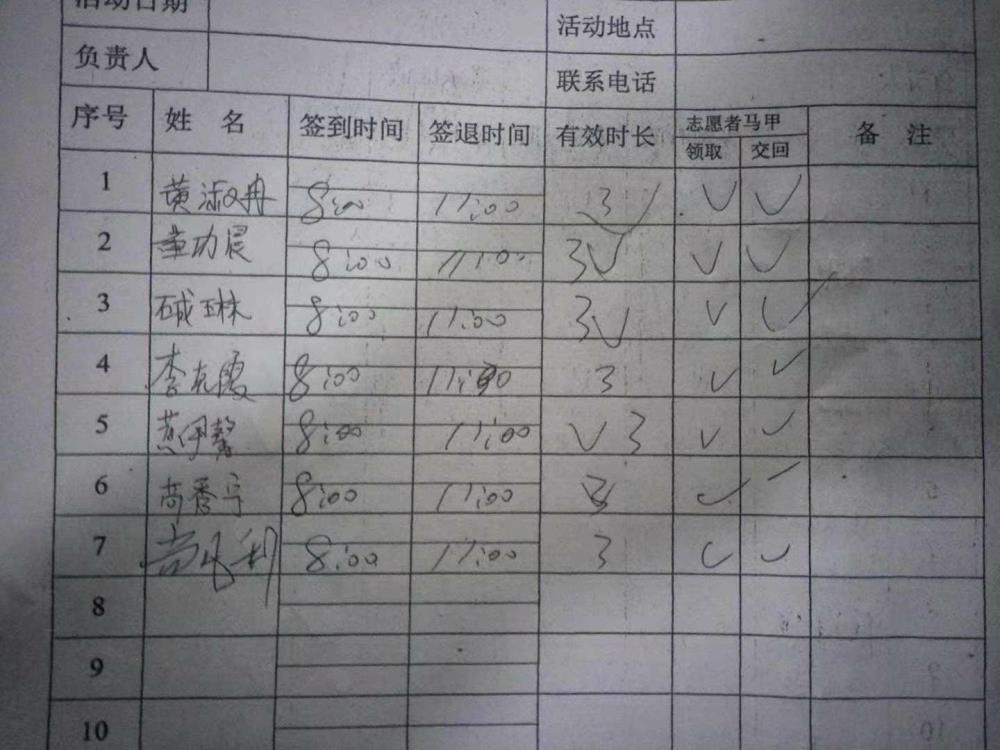 活动日期 活动地点
负责人 联系电话
序号 姓 名 签到时间 签退时间 有效时长 志愿者马甲 备 注
领取 交回
1 黄 冉 8:00 11:00 3 ✓ ✓ ✓
2 8:00 11:00 3 ✓ ✓ ✓
3 琳 8:00 11:00 3 ✓ ✓ ✓
4 李 霞 8:00 11:00 3 ✓ ✓
5 黄伊馨 8:00 11:00 ✓ 3 ✓ ✓
6 高香宇 8:00 11:00 3 ✓ ✓
7 利 8:00 11:00 3 ✓ ✓
8
9
10